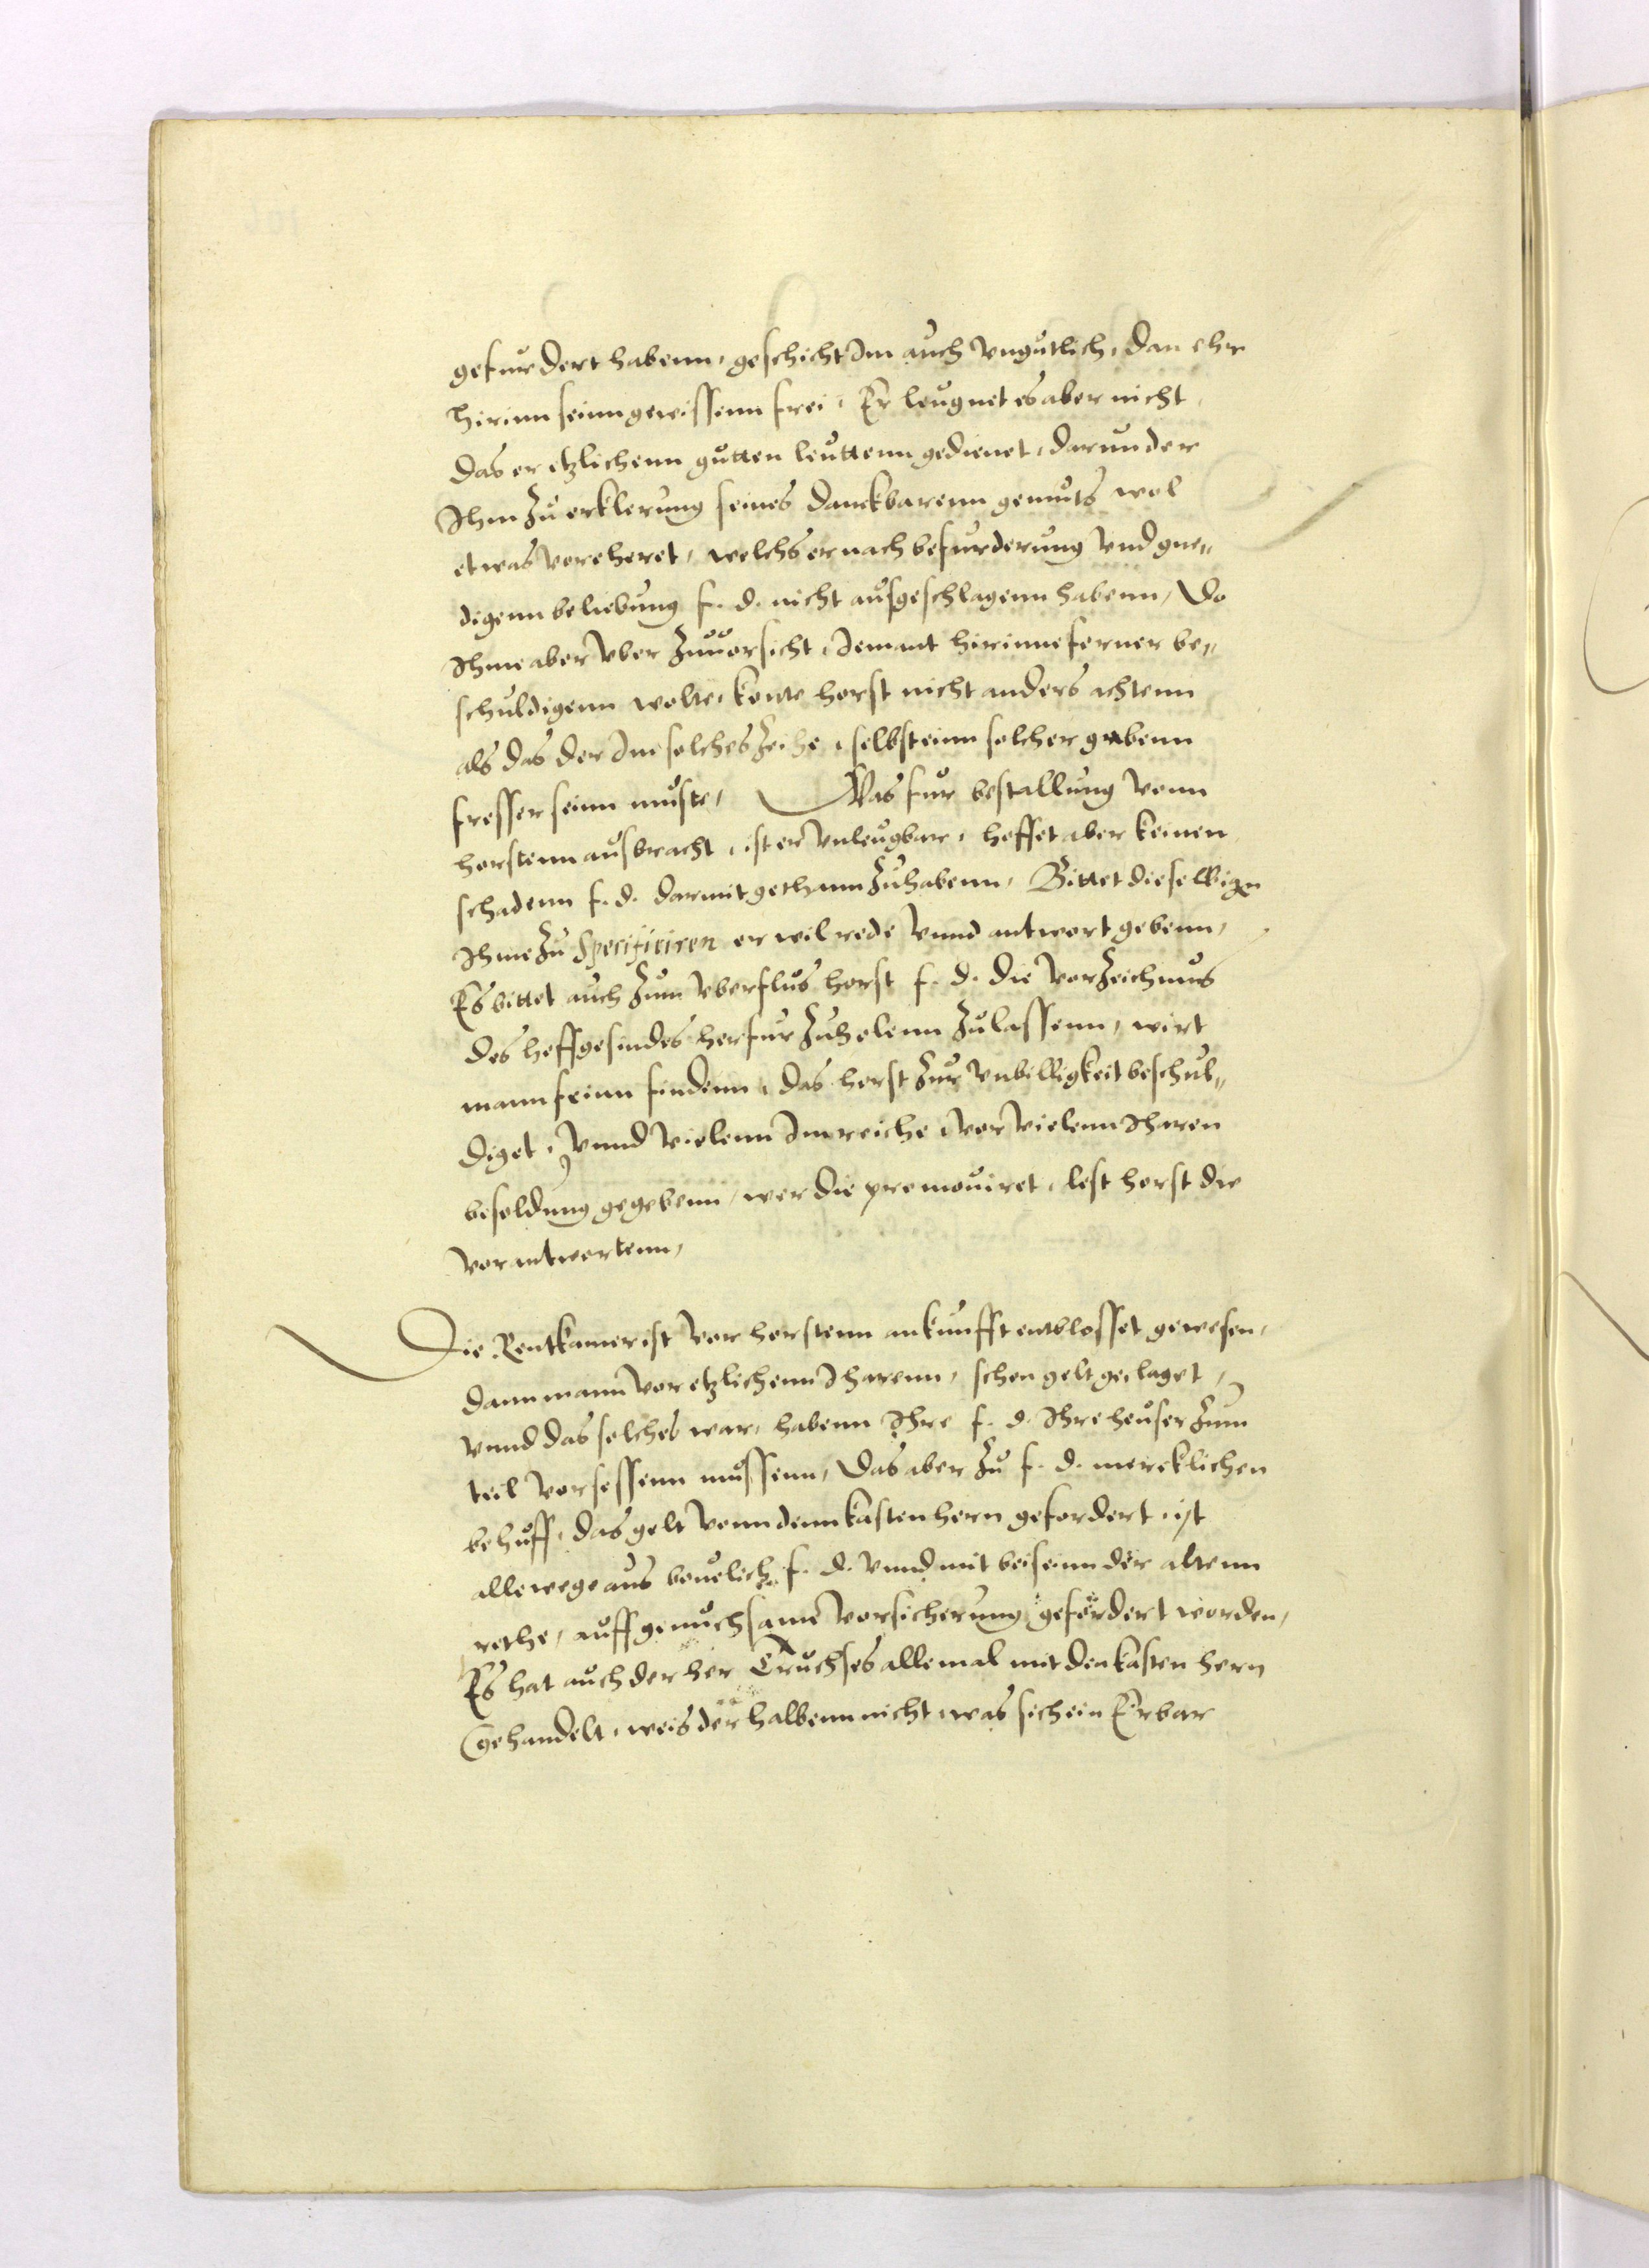 gefurdert habenn, geschicht Im auch vngutlich, dan ehr
hirinn seinn gewissenn frei, Er leugnet es aber nicht,
das er etzlichenn gutten leuttenn gedienet, darunder
Ihm zu erklerung seines danckbarenn gemuts wol
etwas vorehret, welchs er nach befurderung vnd gne„
digenn beliebung f. d. nicht ausgeschlagenn habenn, Do
Ihme aber vber zuuorsicht, Iemant hirinne ferner be„
schuldigenn wolte, konte horst nicht anders achtenn
als das der Im solches zeihe, selbst einn solcher gabenn
fresser seinn muste, Was fur bestallung vonn
horstenn ausbracht, ist er vnleugbar, hoffet aber keinen
schadenn f. d. darmit gethann zuhabenn, Bittet dieselbigen
Ihme zu Specificiren er wil rede vnnd antwort gebenn,
Es bittet auch zum vberflus horst f. d. die vorzeichnus
des hoffgesindes herfur zuholenn zulassenn, wirt
mann feinn findenn, das horst zur vnbilligkeit beschul„
diget, vnnd vielenn Im reiche, vor vielenn Iharen
besoldung gegebenn, wer die promouiret, lest horst die
vorantwortenn,
Die Rentkamer ist vor horstenn ankunfft entblosset gewesen,
dann mann vor etzlichenn Iharenn, schon gelt geclaget,
vnnd das solches war, habenn Ihre f. d. Ihre heuser zum
teil vorsessenn mussenn, Das aber zu f. d. mercklichen
behuff, das gelt vonn denn kastenhern gefordert, ist
allewege aus beuelich f. d. vnnd mit beisenn der altenn
rethe, auff genuchsame vorsicherung gefordert worden,
Es hat auch der her Truchses allemal mit den kasten hern
gehandelt, weis derhalbenn nicht, was sich ein Erbar